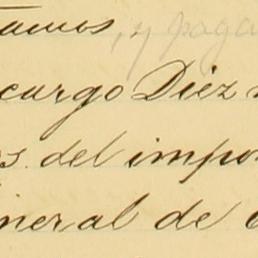 tamos, y paga
curgo Díez
s. del impo
ineral de